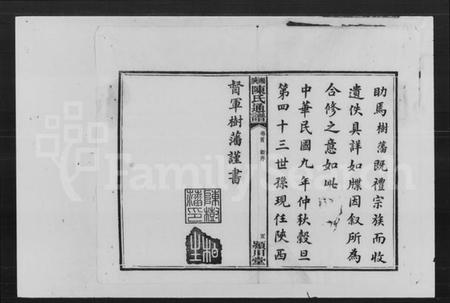 助焉樹藩既禮宗族而收
遺佚具詳如牒因叙所為
合修之意如此
中華民國九年仲秋穀旦
第四十三世孫現任陝西
陳氏通譜
卷首
五
潁川堂
督軍樹藩謹書
陳樹藩印
FamilySearch